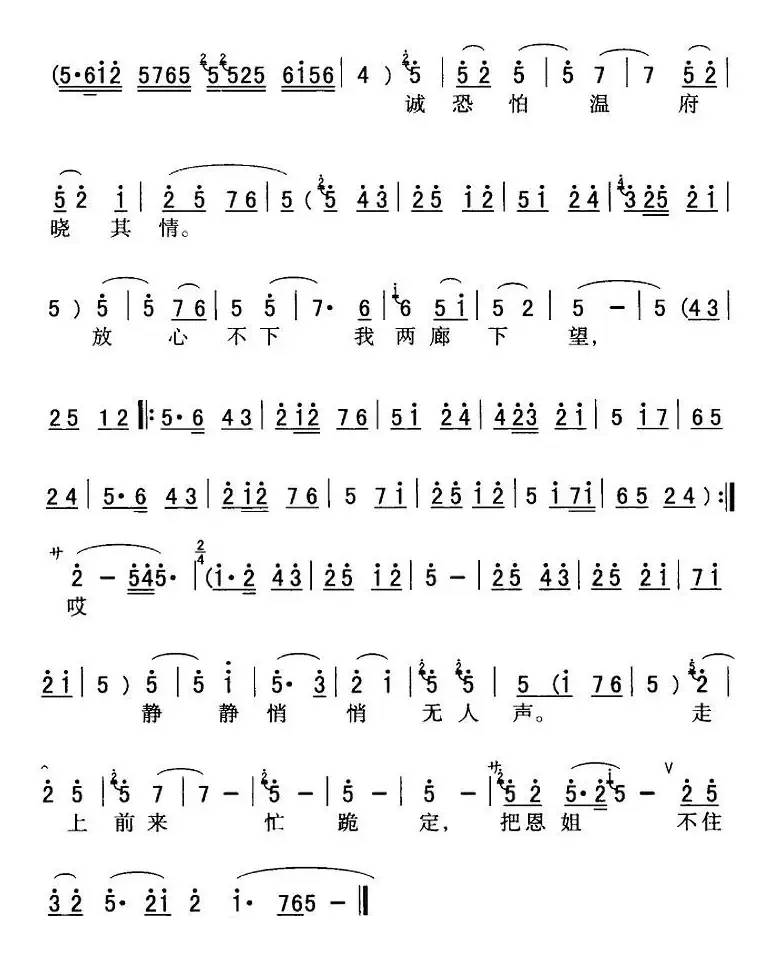 (5·612 5765 5525 6156 | 4 ) 5 | 52 5 | 5 7 | 7 52 |
诚恐怕温府
52 1 | 25 76 | 5 ( 5 43 | 25 12 | 51 24 | 325 21 |
晓其情。
5 ) 5 | 5 76 | 5 5 | 7· 6 | 6 51 | 5 2 | 5 - | 5 (43 |
放心不下我两廊下望,
25 12 ‖: 5·6 43 | 212 76 | 51 24 | 423 21 | 5 17 | 65
24 | 5·6 43 | 212 76 | 5 71 | 25 12 | 5 171 | 65 24 ) :‖
サ 2 - 545· | 2/4 (1·2 43 | 25 12 | 5 - | 25 43 | 25 21 | 71
哎
21 | 5 ) 5 | 5 1 | 5· 3 | 2 1 | 5 5 | 5 (1 76 | 5 ) 2 |
静静悄悄无人声。走
2 5 | 5 7 | 7 - | 5 - | 5 - | 5 - | サ 52 5·25 - ∨ 25
上前来忙跪定,把恩姐不住
32 5· 21 2 1· 765 - ‖